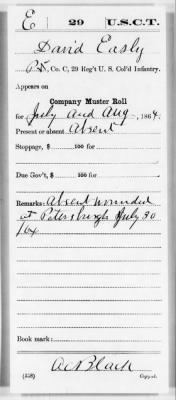 E 29 U.S.C.T.
David Easly
Pvt, Co. C, 29 Reg't U. S. Col'd Infantry.
Appears on
Company Muster Roll
for July and Aug, 1864.
Present or absent Absent
Stoppage, $ 100 for
Due Gov't, $ 100 for
Remarks: Absent wounded
at Petersburgh July 30
/64
Book mark:
A C Black
(358) Copyist.